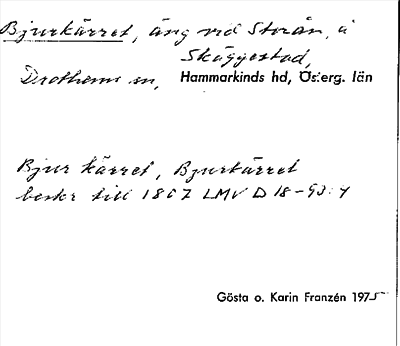 Bjurkärret, äng vid Storån, å
Skäggestad,
Drothems sn, Hammarkinds hd, Österg. län
Bjur kärret, Bjurkärret
beskr till 1867 LMV D 18-93:4
Gösta o. Karin Franzén 1975